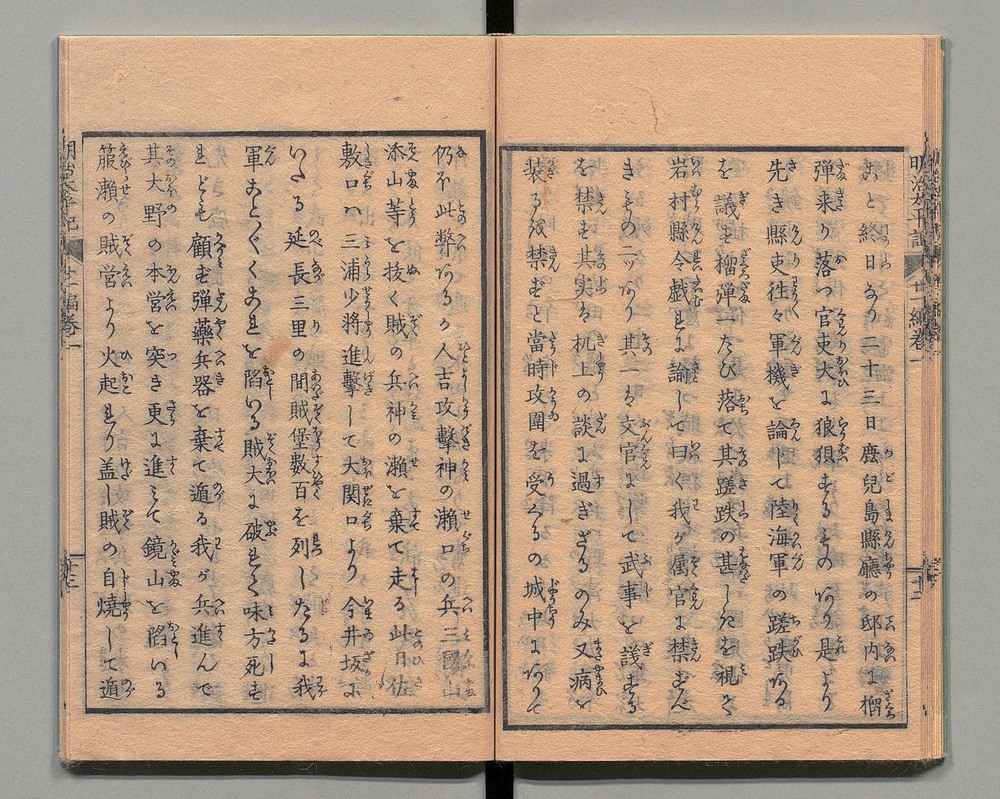 明治太平記 廿一編巻一 十二
こと終日なり二十三日鹿兒島縣廳の邸内に榴
弾来り落つ官吏大に狼狽するものあり是より
先き縣吏徃々軍機を論して陸海軍の蹉跌ある
を議す榴弾二たび落て其蹉跌の甚しきを視る
岩村縣令戯れに諭して曰く我が属官に禁ずべ
きもの二ツあり其一は文官にして武事を議する
を禁ず其実は机上の談に過ぎざるのみ又病を
装ふを禁ずと當時攻圍を受くるの城中にありて
仍不此弊あるか人吉攻撃神の瀬口の兵三國山
添山等を抜く賊の兵神の瀬を棄て走る此日佐
敷口ハ三浦少将進撃して大関口より今井坂に
いたる延長三里の間賊堡数百を列したるに我
軍ことごとくこれを陥いる賊大に破れて味方死を
れども顧ず弾藥兵器を棄て遁る我が兵進んで
其大野の本営を突き更に進みて鏡山を陥いる
箙瀬の賊営より火起れり盖し賊の自焼して遁
明治太平記 廿一編巻一 十三